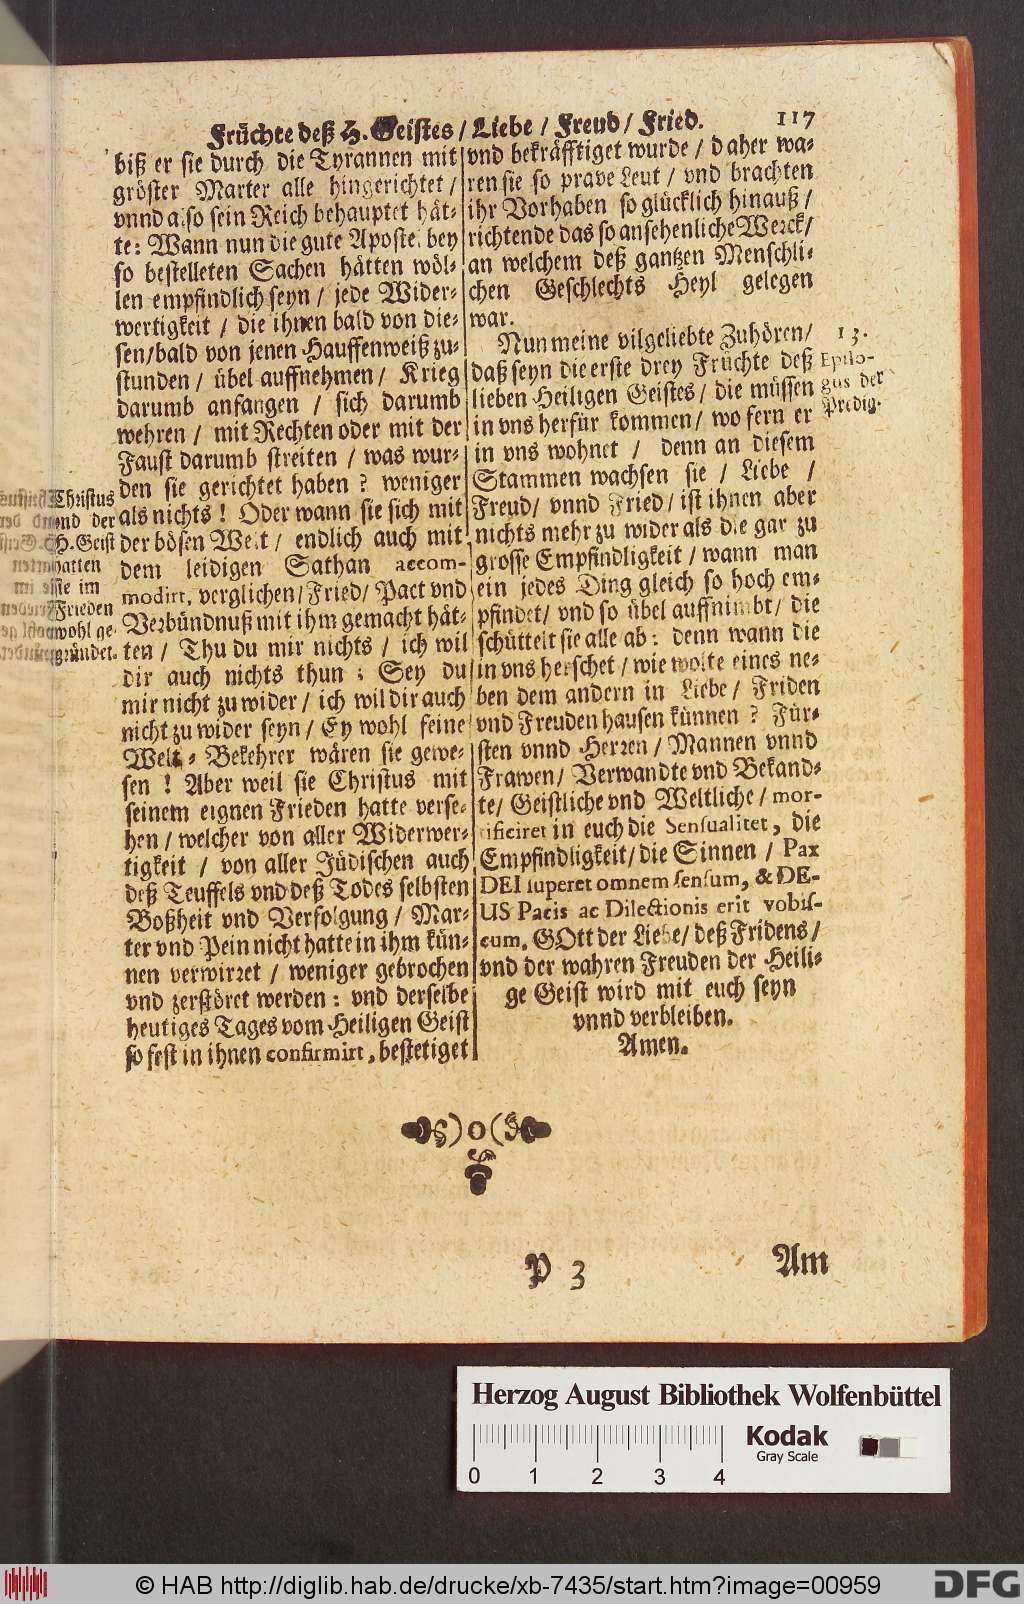 Früchte deß H. Geistes / Liebe / Freud / Fried. 117
biß er sie durch die Tyrannen mit
gröster Marter alle hingerichtet /
vnnd also sein Reich behauptet hät-
te: Wann nun die gute Aposte. bey
so bestelleten Sachen hätten wöl-
len empfindlich seyn / jede Wider-
wertigkeit / die ihnen bald von die-
sen/bald von jenen Hauffenweiß zu-
stunden / übel auffnehmen / Krieg
darumb anfangen / sich darumb
wehren / mit Rechten oder mit der
Faust darumb streiten / was wur-
den sie gerichtet haben ? weniger
als nichts ! Oder wann sie sich mit
der bösen Welt / endlich auch mit
dem leidigen Sathan accom-
modirt, verglichen/ Fried/ Pact vnd
Verbündnuß mit ihm gemacht hät-
ten / Thu du mir nichts / ich wil
dir auch nichts thun ; Sey du
mir nicht zu wider / ich wil dir auch
nicht zu wider seyn / Ey wohl feine
Welt-Bekehrer wären sie gewe-
sen ! Aber weil sie Christus mit
seinem eignen Frieden hatte verse-
hen / welcher von aller Widerwer-
tigkeit / von aller Jüdischen auch
deß Teuffels vnd deß Todes selbsten
Boßheit vnd Verfolgung / Mar-
ter vnd Pein nicht hatte in ihm kün-
nen verwirret / weniger gebrochen
vnd zerstöret werden : vnd derselbe
heutiges Tages vom Heiligen Geist
so fest in ihnen confirmirt, bestetiget
Christus
vnd der
H. Geist
hatten
sie im
Frieden
wohl ge-
gründet.
vnd bekräfftiget wurde / daher wa-
ren sie so prave Leut / vnd brachten
ihr Vorhaben so glücklich hinauß /
richtende das so ansehenliche Werck/
an welchem deß gantzen Menschli-
chen Geschlechts Heyl gelegen
war.
Nun meine vilgeliebte Zuhören/
daß seyn die erste drey Früchte deß
lieben Heiligen Geistes / die müssen
in vns herfür kommen / wo fern er
in vns wohnet / denn an diesem
Stammen wachsen sie / Liebe /
Freud / vnnd Fried / ist ihnen aber
nichts mehr zu wider als die gar zu
grosse Empfindligkeit / wann man
ein jedes Ding gleich so hoch em-
pfindet / vnd so übel auffnimbt / die
schüttelt sie alle ab : denn wann die
in vns herschet / wie wolte eines ne-
ben dem andern in Liebe / Friden
vnd Freuden hausen künnen ? Für-
sten vnnd Herren / Mannen vnnd
Frawen / Verwandte vnd Bekand-
te / Geistliche vnd Weltliche / mor-
tificiret in euch die Sensualitet, die
Empfindligkeit / die Sinnen / Pax
DEI superet omnem sensum, & DE-
US Pacis ac Dilectionis erit vobis-
cum, GOtt der Liebe / deß Fridens /
vnd der wahren Freuden der Heili-
ge Geist wird mit euch seyn
vnnd verbleiben.
Amen.
13.
Epilo-
gus der
Predig.
)o(
P 3
Am
Herzog August Bibliothek Wolfenbüttel
Kodak
Gray Scale
0 1 2 3 4
© HAB http://diglib.hab.de/drucke/xb-7435/start.htm?image=00959
DFG